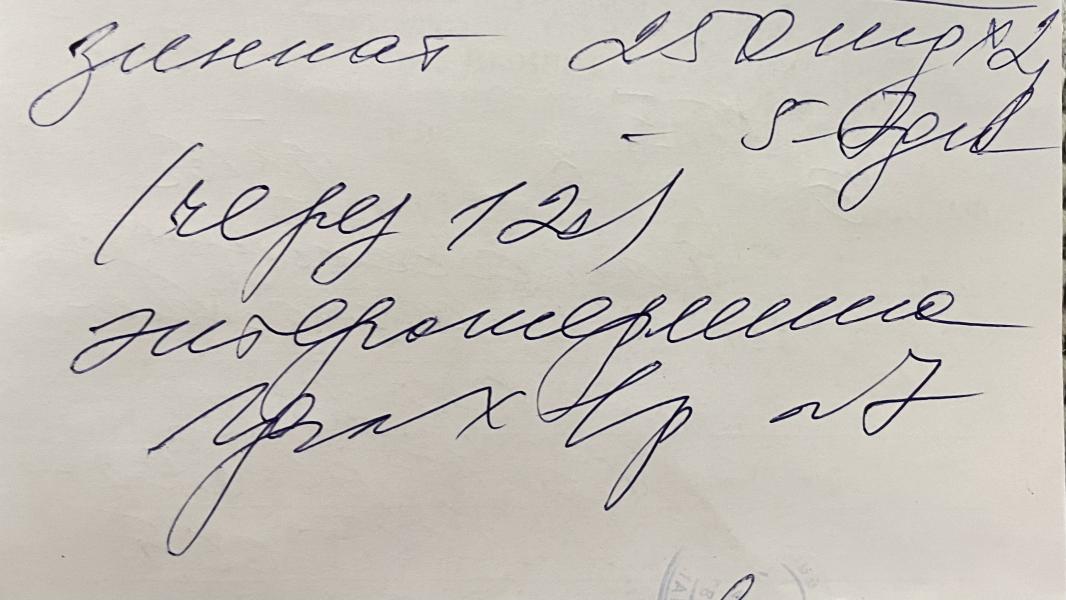 зиннат 250mg x 2
- 5-7 дней
(через 12ч)
энтерожермина
1 фл x 1 р N7